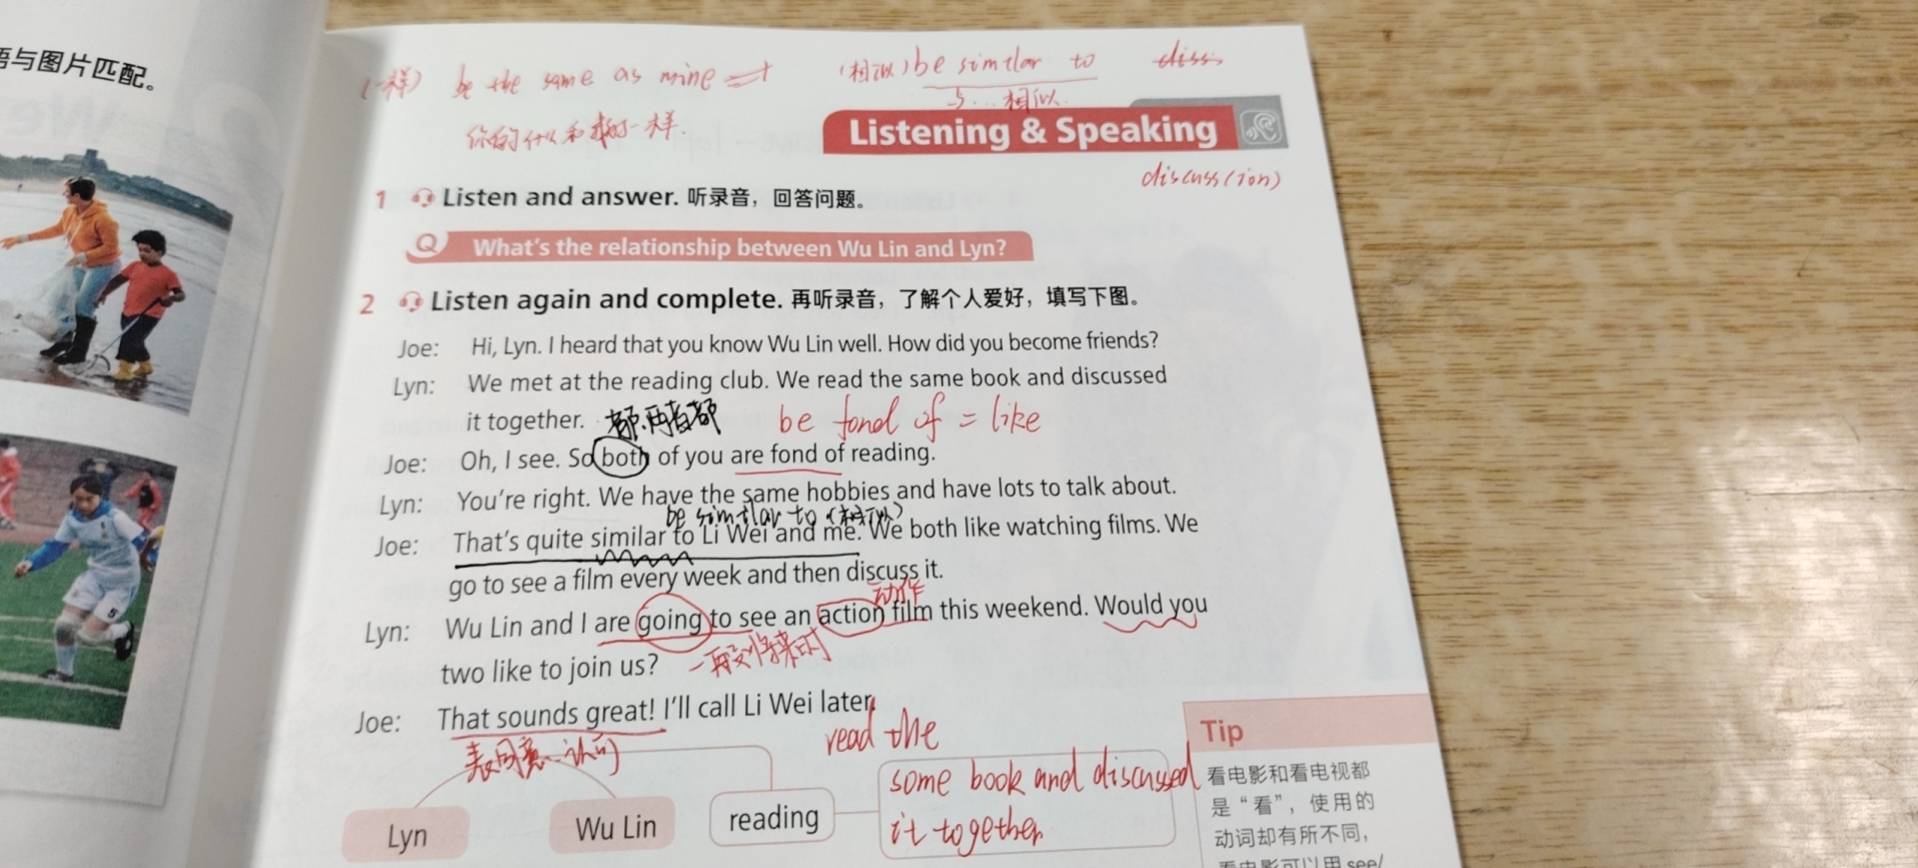 语与图片匹配。
(一样) be the same as mine
(相似) be similar to
与...相似
你的什么和我的一样.
Listening & Speaking
discuss(ion)
1 Listen and answer. 听录音，回答问题。
Q What's the relationship between Wu Lin and Lyn?
2 Listen again and complete. 再听录音，了解个人爱好，填写下图。
Joe: Hi, Lyn. I heard that you know Wu Lin well. How did you become friends?
Lyn: We met at the reading club. We read the same book and discussed
it together. 都.两者都 be fond of = like
Joe: Oh, I see. So both of you are fond of reading.
Lyn: You're right. We have the same hobbies and have lots to talk about.
be similar to (相似)
Joe: That's quite similar to Li Wei and me. We both like watching films. We
go to see a film every week and then discuss it.
动作
Lyn: Wu Lin and I are going to see an action film this weekend. Would you
two like to join us? 一般将来时
Joe: That sounds great! I'll call Li Wei later.
表同意、认可
read the
some book and discussed
it together
Lyn
Wu Lin
reading
Tip
看电影和看电视都
是“看”，使用的
动词却有所不同，
看电影可以用 see/